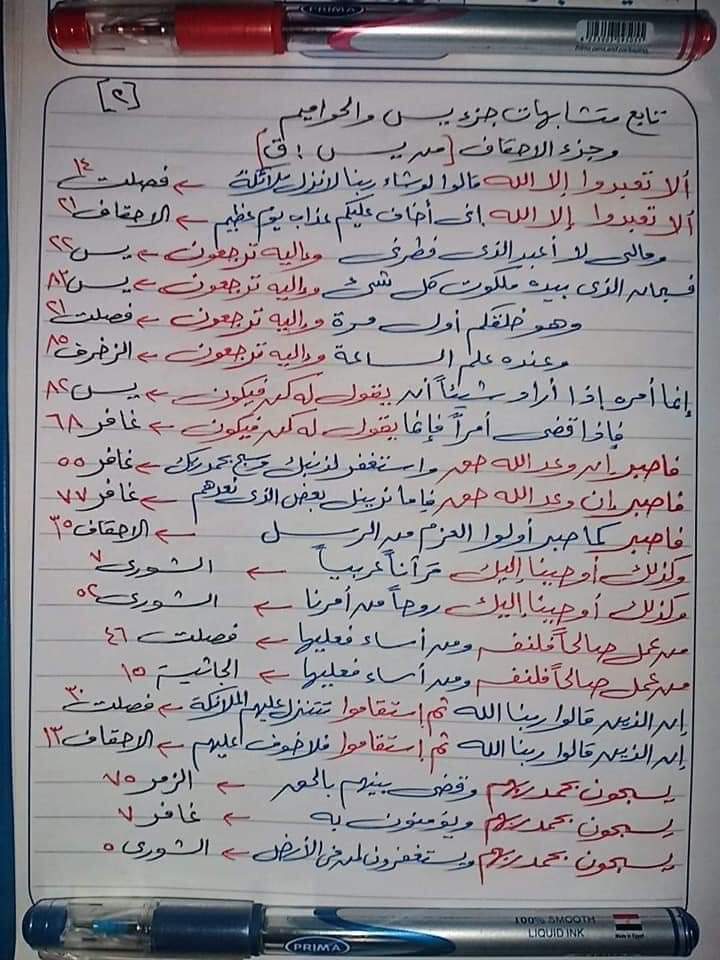 PRIMA
[٢]
تابع متشابهات جزء يس والحواميم
وجزء الاحقاف [من يس : ق]
ألا تعبدوا إلا الله قالوا لو شاء ربنا لانزل ملائكة ← فصلت ١٤
ألا تعبدوا إلا الله إنى أخاف عليكم عذاب يوم عظيم ← الاحقاف ٢١
ومالى لا أعبد الذى فطرنى وإليه ترجعون ← يس ٢٢
فسبحان الذى بيده ملكوت كل شئ وإليه ترجعون ← يس ٨٣
وهو خلقكم أول مرة وإليه ترجعون ← فصلت ٢١
وعنده علم الساعة وإليه ترجعون ← الزخرف ٨٥
إنما أمره إذا أراد شيئاً أن يقول له كن فيكون ← يس ٨٢
فإذا قضى أمراً فإنما يقول له كن فيكون ← غافر ٦٨
فاصبر إن وعد الله حق واستغفر لذنبك وسبح بحمد ربك ← غافر ٥٥
فاصبر إن وعد الله حق فإما نرينك بعض الذى نعدهم ← غافر ٧٧
فاصبر كما صبر أولوا العزم من الرسل ← الاحقاف ٣٥
وكذلك أوحينا إليك قرآناً عربياً ← الشورى ٧
وكذلك أوحينا إليك روحاً من أمرنا ← الشورى ٥٢
من عمل صالحاً فلنفسه ومن أساء فعليها ← فصلت ٤٦
من عمل صالحاً فلنفسه ومن أساء فعليها ← الجاثية ١٥
إن الذين قالوا ربنا الله ثم إستقاموا تتنزل عليهم الملائكة ← فصلت ٣٠
إن الذين قالوا ربنا الله ثم إستقاموا فلا خوف عليهم ← الاحقاف ١٣
يسبحون بحمد ربهم وقضى بينهم بالحق ← الزمر ٧٥
يسبحون بحمد ربهم ويؤمنون به ← غافر ٧
يسبحون بحمد ربهم ويستغفرون لمن فى الأرض ← الشورى ٥
PRIMA
100% SMOOTH
LIQUID INK
Made in Egypt